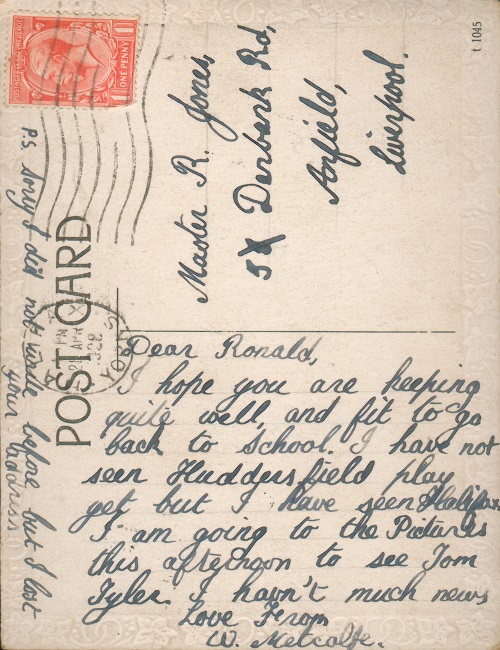 POST CARD
t 1045
ONE PENNY
Master R. Jones,
5X Darbank Rd,
Anfield,
Liverpool.
Dear Ronald,
I hope you are keeping
quite well, and fit to go
back to School. I have not
seen Huddersfield play
yet but I have seen Halifax.
I am going to the Pictures
this afternoon to see Tom
Tyler. I havn't much news
Love From
W. Metcalfe.
P.S. Sorry I did not write before but I lost
your address